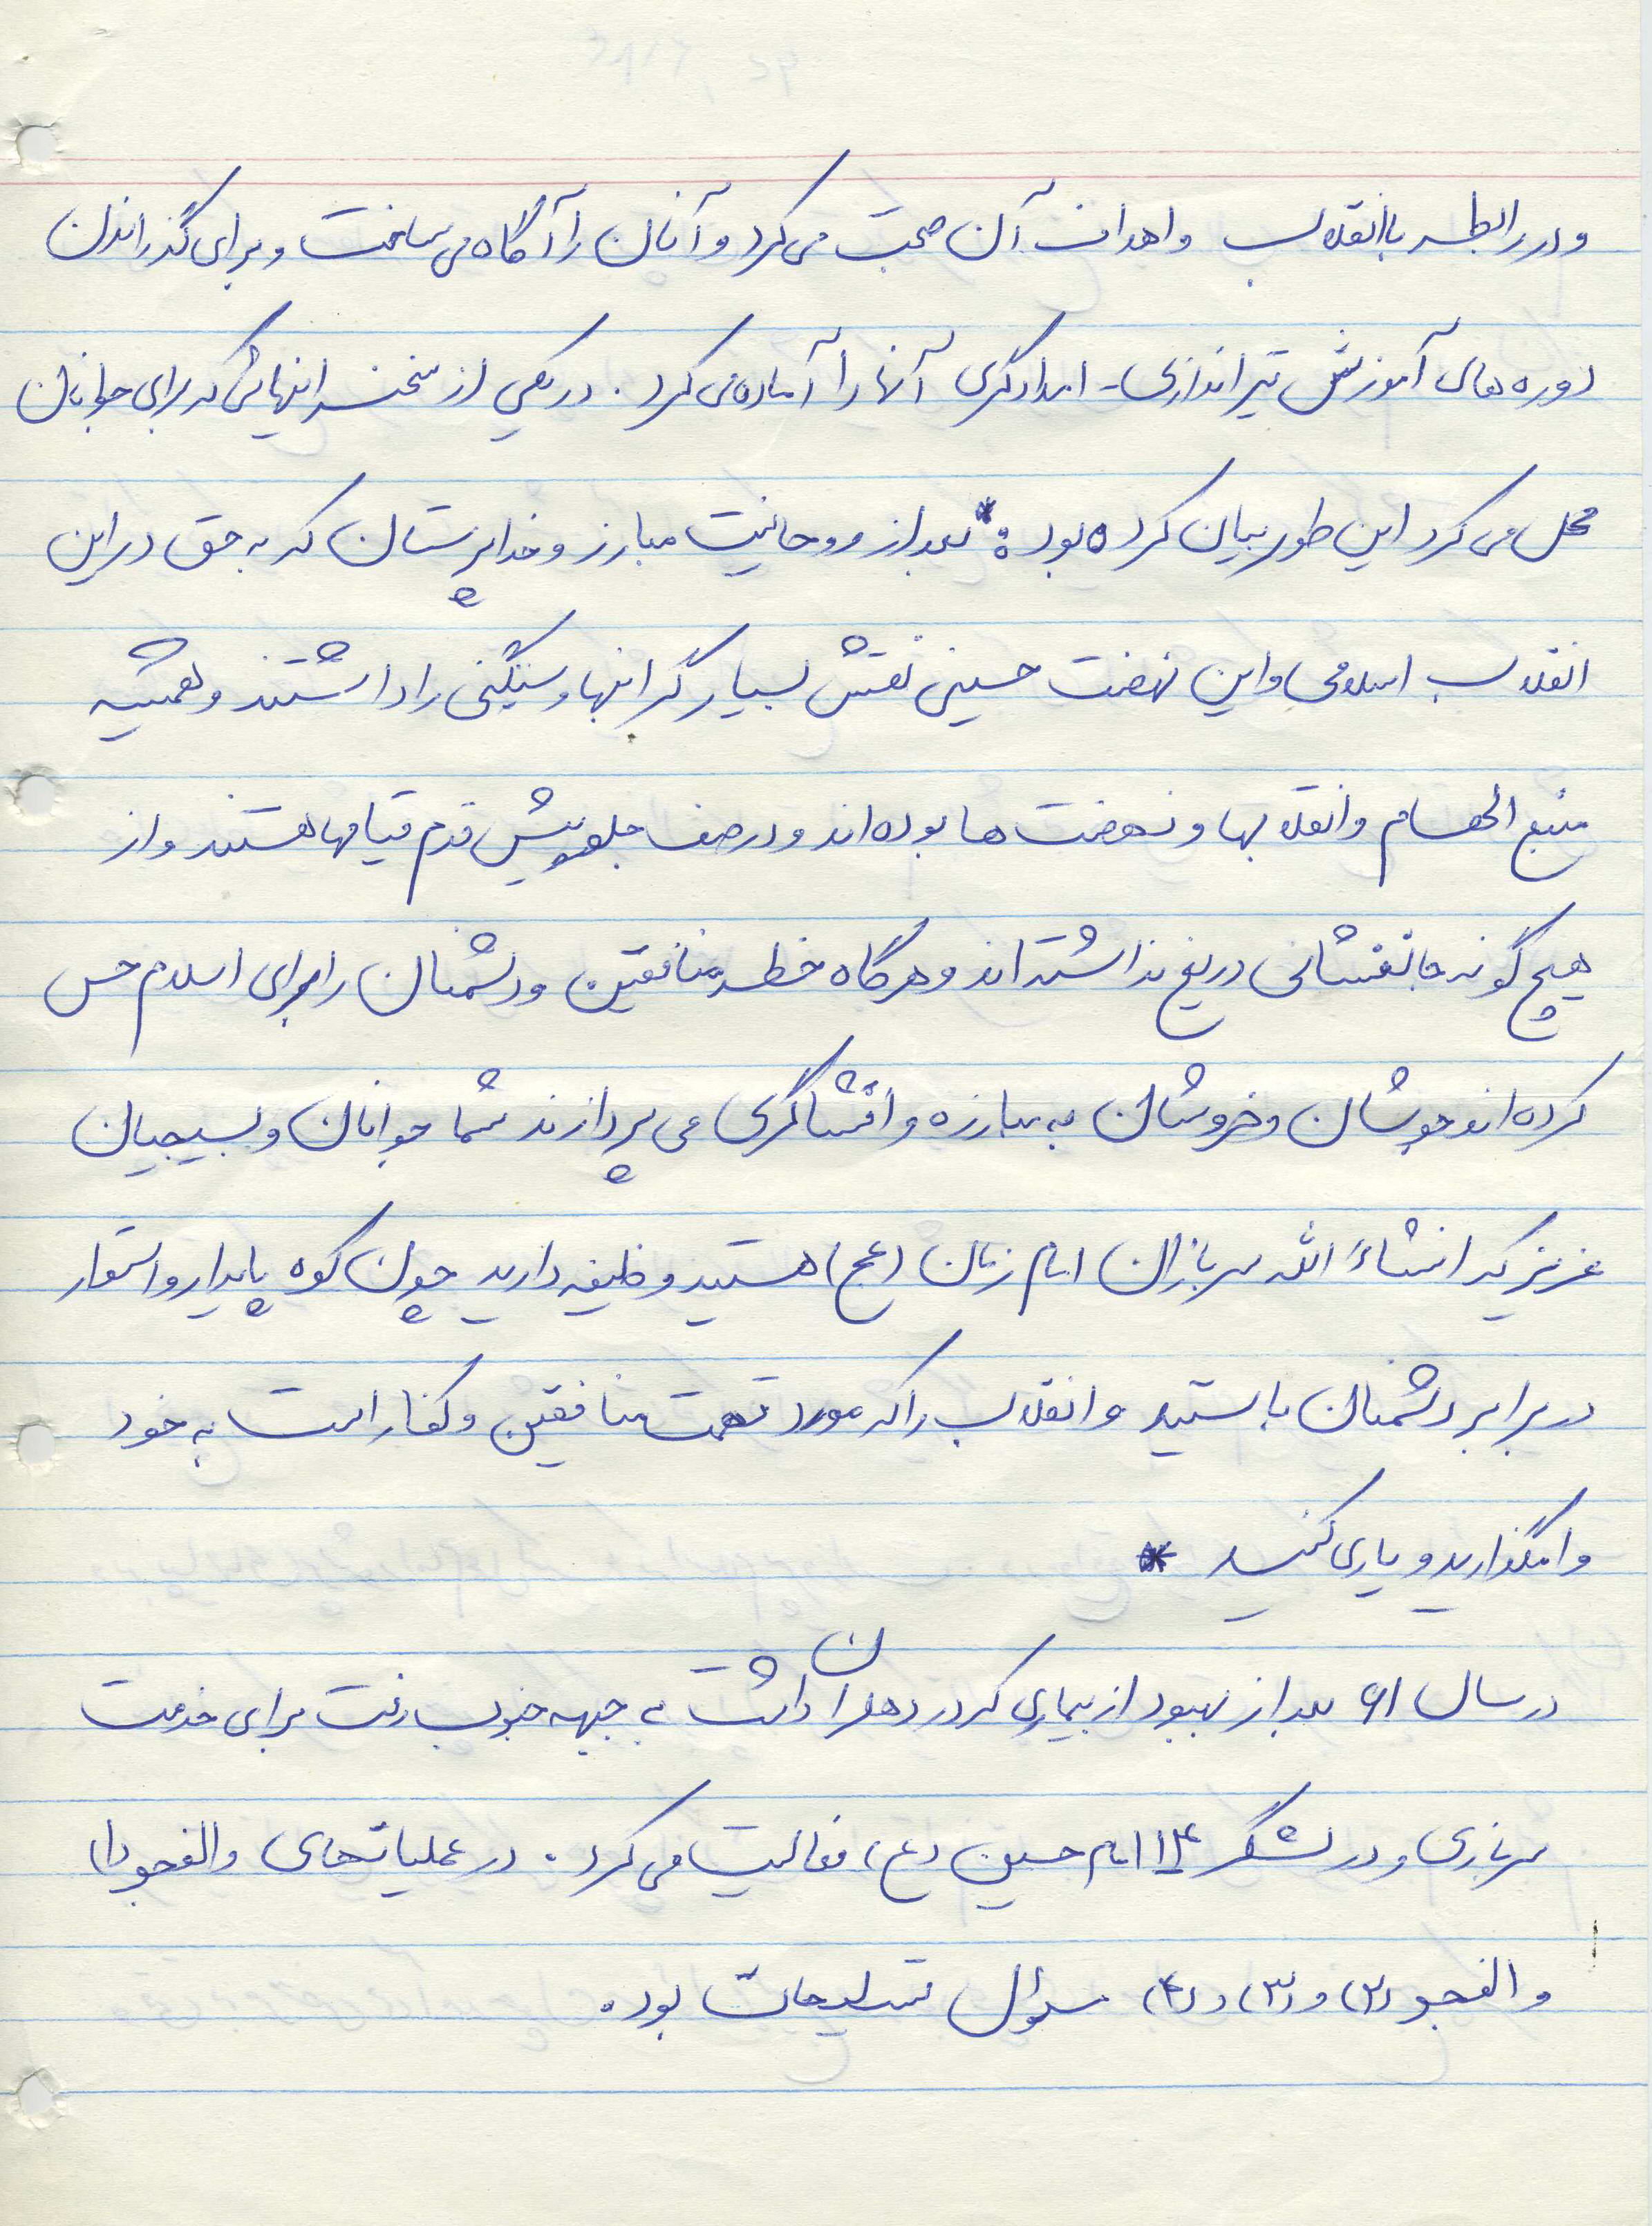 و در رابطه با انقلاب و اهداف آن صحبت می کرد و آنان را آگاه می ساخت و برای گذراندن
دوره های آموزش تیراندازی - امدادگری آنها را آماده می کرد. در یکی از سخنرانیهائی که برای جوانان
محل می کرد این طور بیان کرده بود: * بعد از روحانیت مبارز و خداپرستان که به حق در این
انقلاب اسلامی و این نهضت حسینی نقش بسیار گرانبها و سنگینی را داشتند و همیشه
منبع الهام و انقلابها و نهضت ها بوده اند و در صف جلو پیش قدم قیامها هستند و از
هیچ گونه جانفشانی دریغ نداشته اند و هر گاه خطر منافقین و دشمنان را برای اسلام حس
کرده اند جوشان و خروشان به مبارزه و افشاگری می پردازند شما جوانان و بسیجیان
عزیز که انشاءالله سربازان امام زمان (عج) هستید وظیفه دارید چون کوه پایدار و استوار
در برابر دشمنان باستید و انقلاب را که مورد تهمت منافقین و کفار است به خود
وامگذارید و یاری کنید *
در سال ۶۱ بعد از بهبود از بیماری که در دهلران داشت به جبهه جنوب رفت برای خدمت
سربازی و در لشگر ۱۴ امام حسین (ع) فعالیت می کرد. در عملیاتهای والفجر (۱)
والفجر (۲) و (۳) و (۴) مسئول تسلیحات بود.